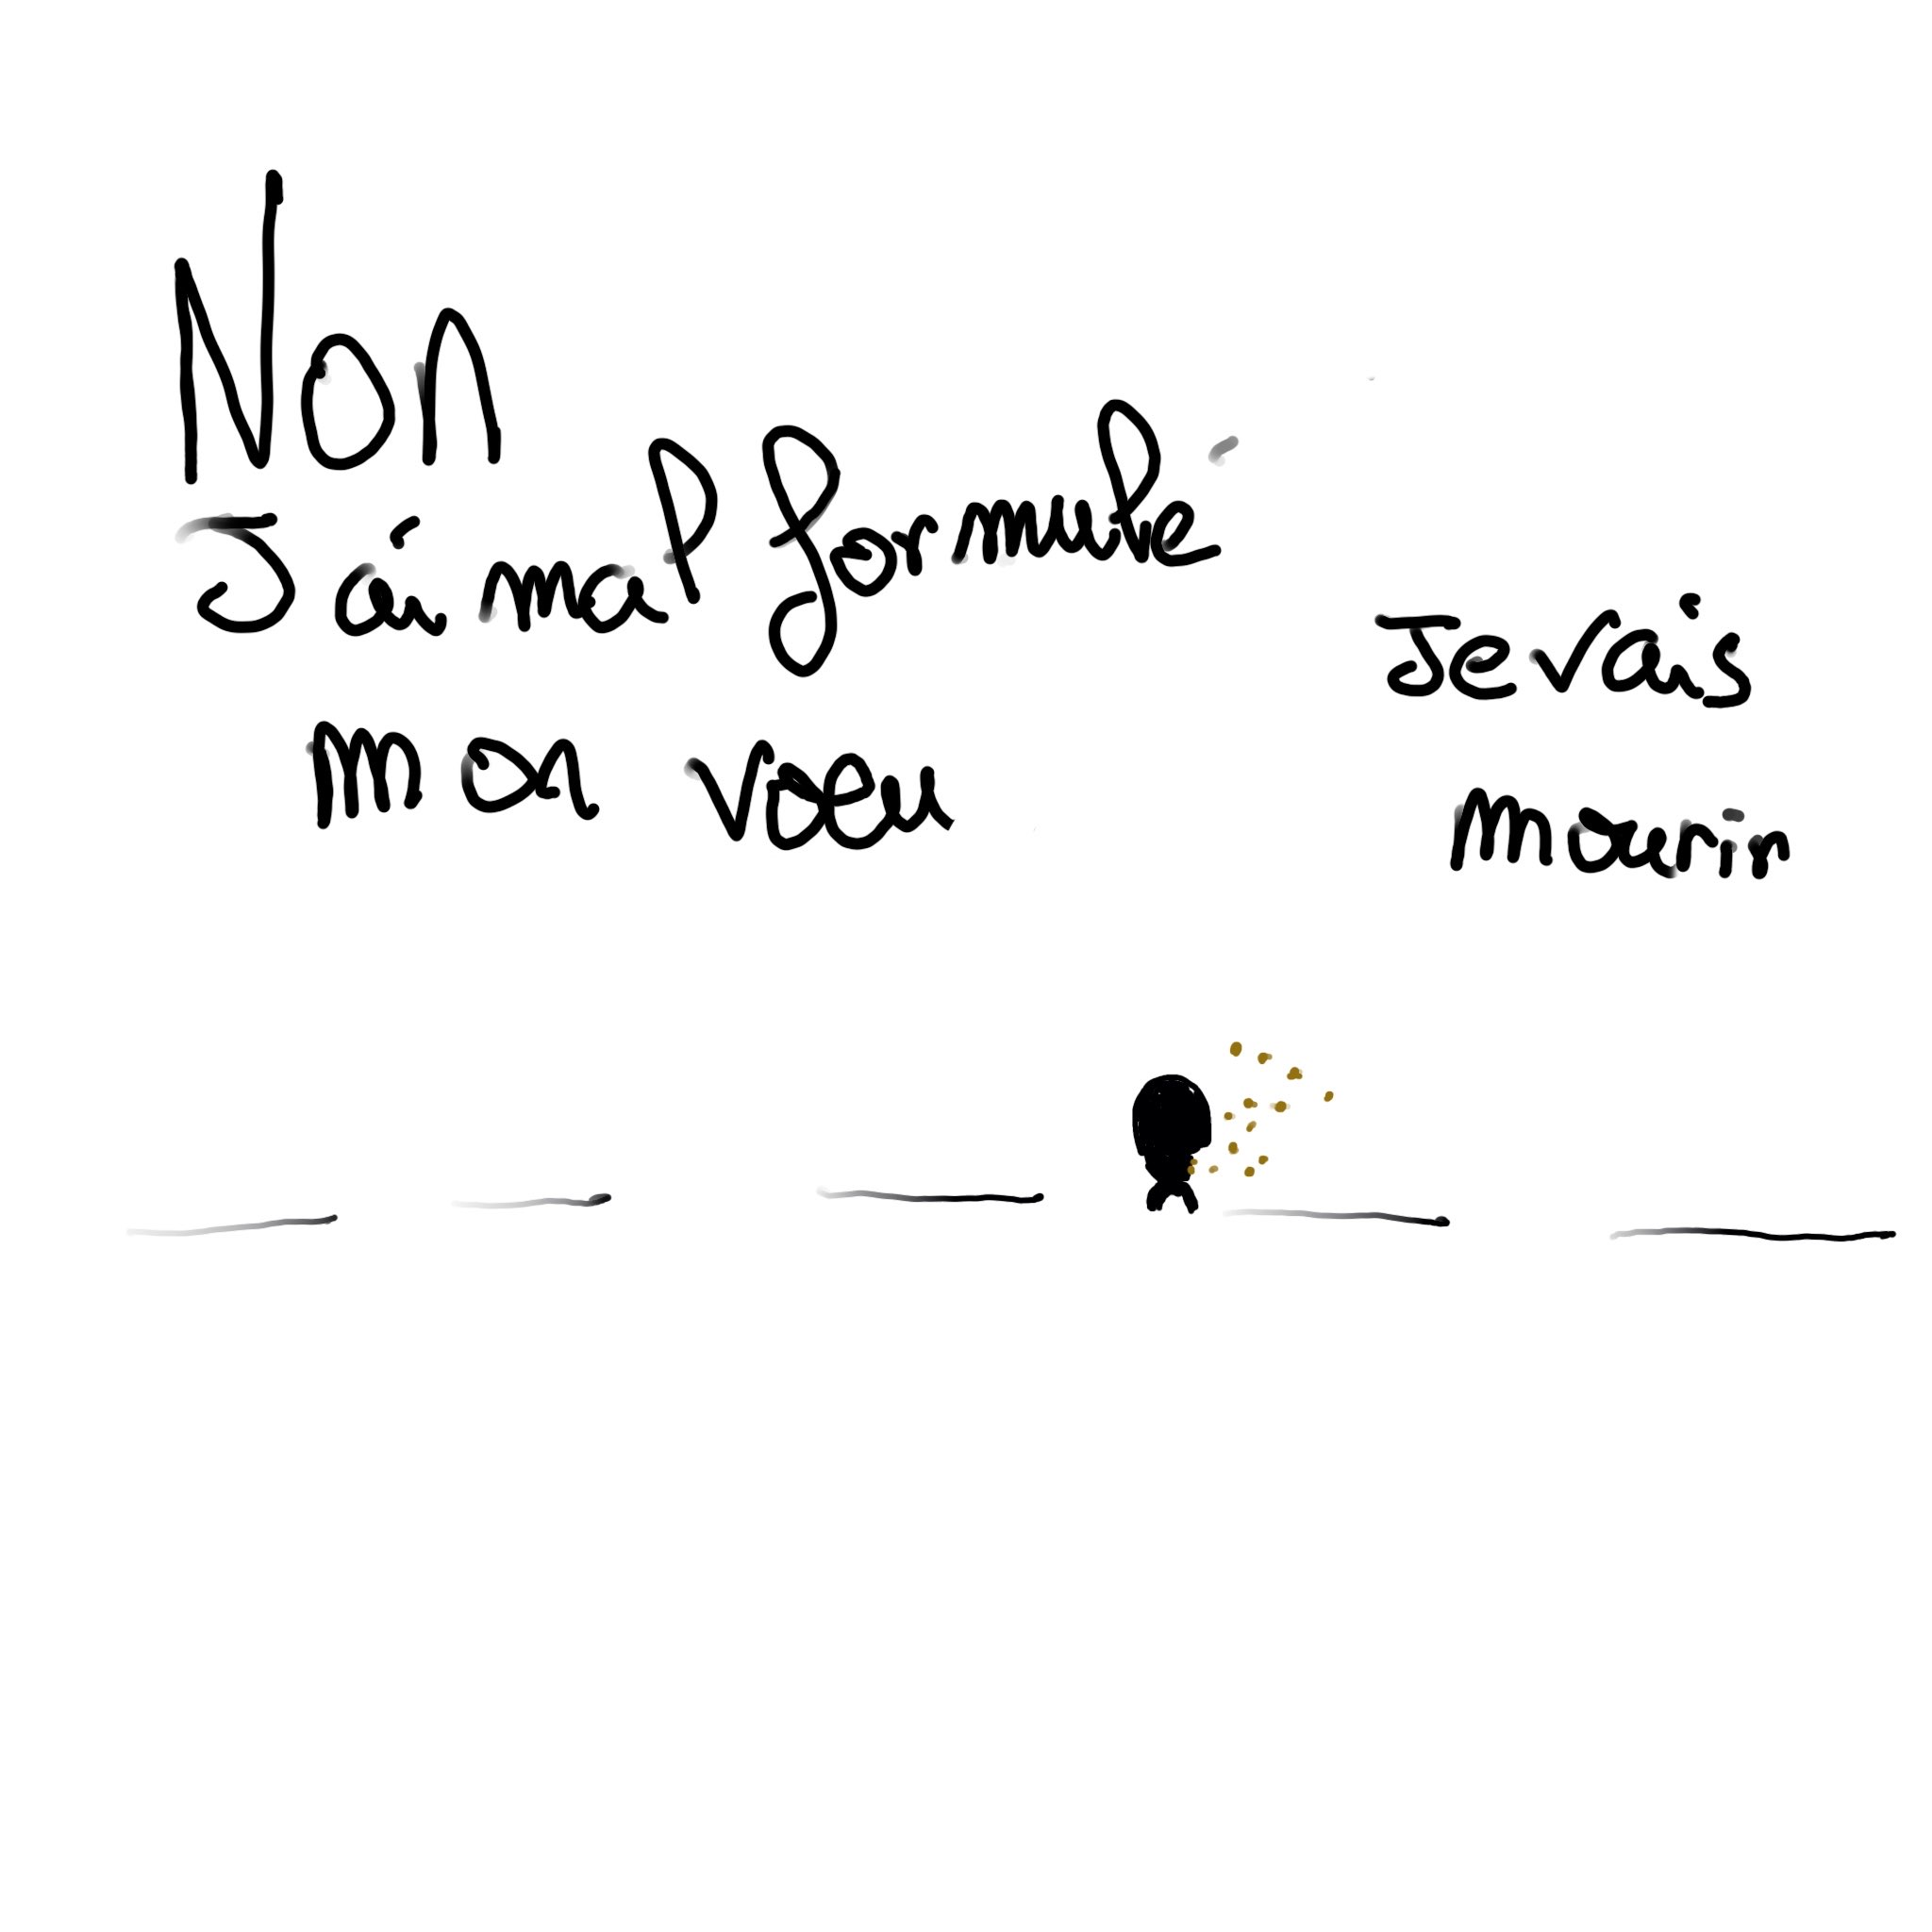 Non
J'ai mal formulé
mon voeu
Je vais
Mourir